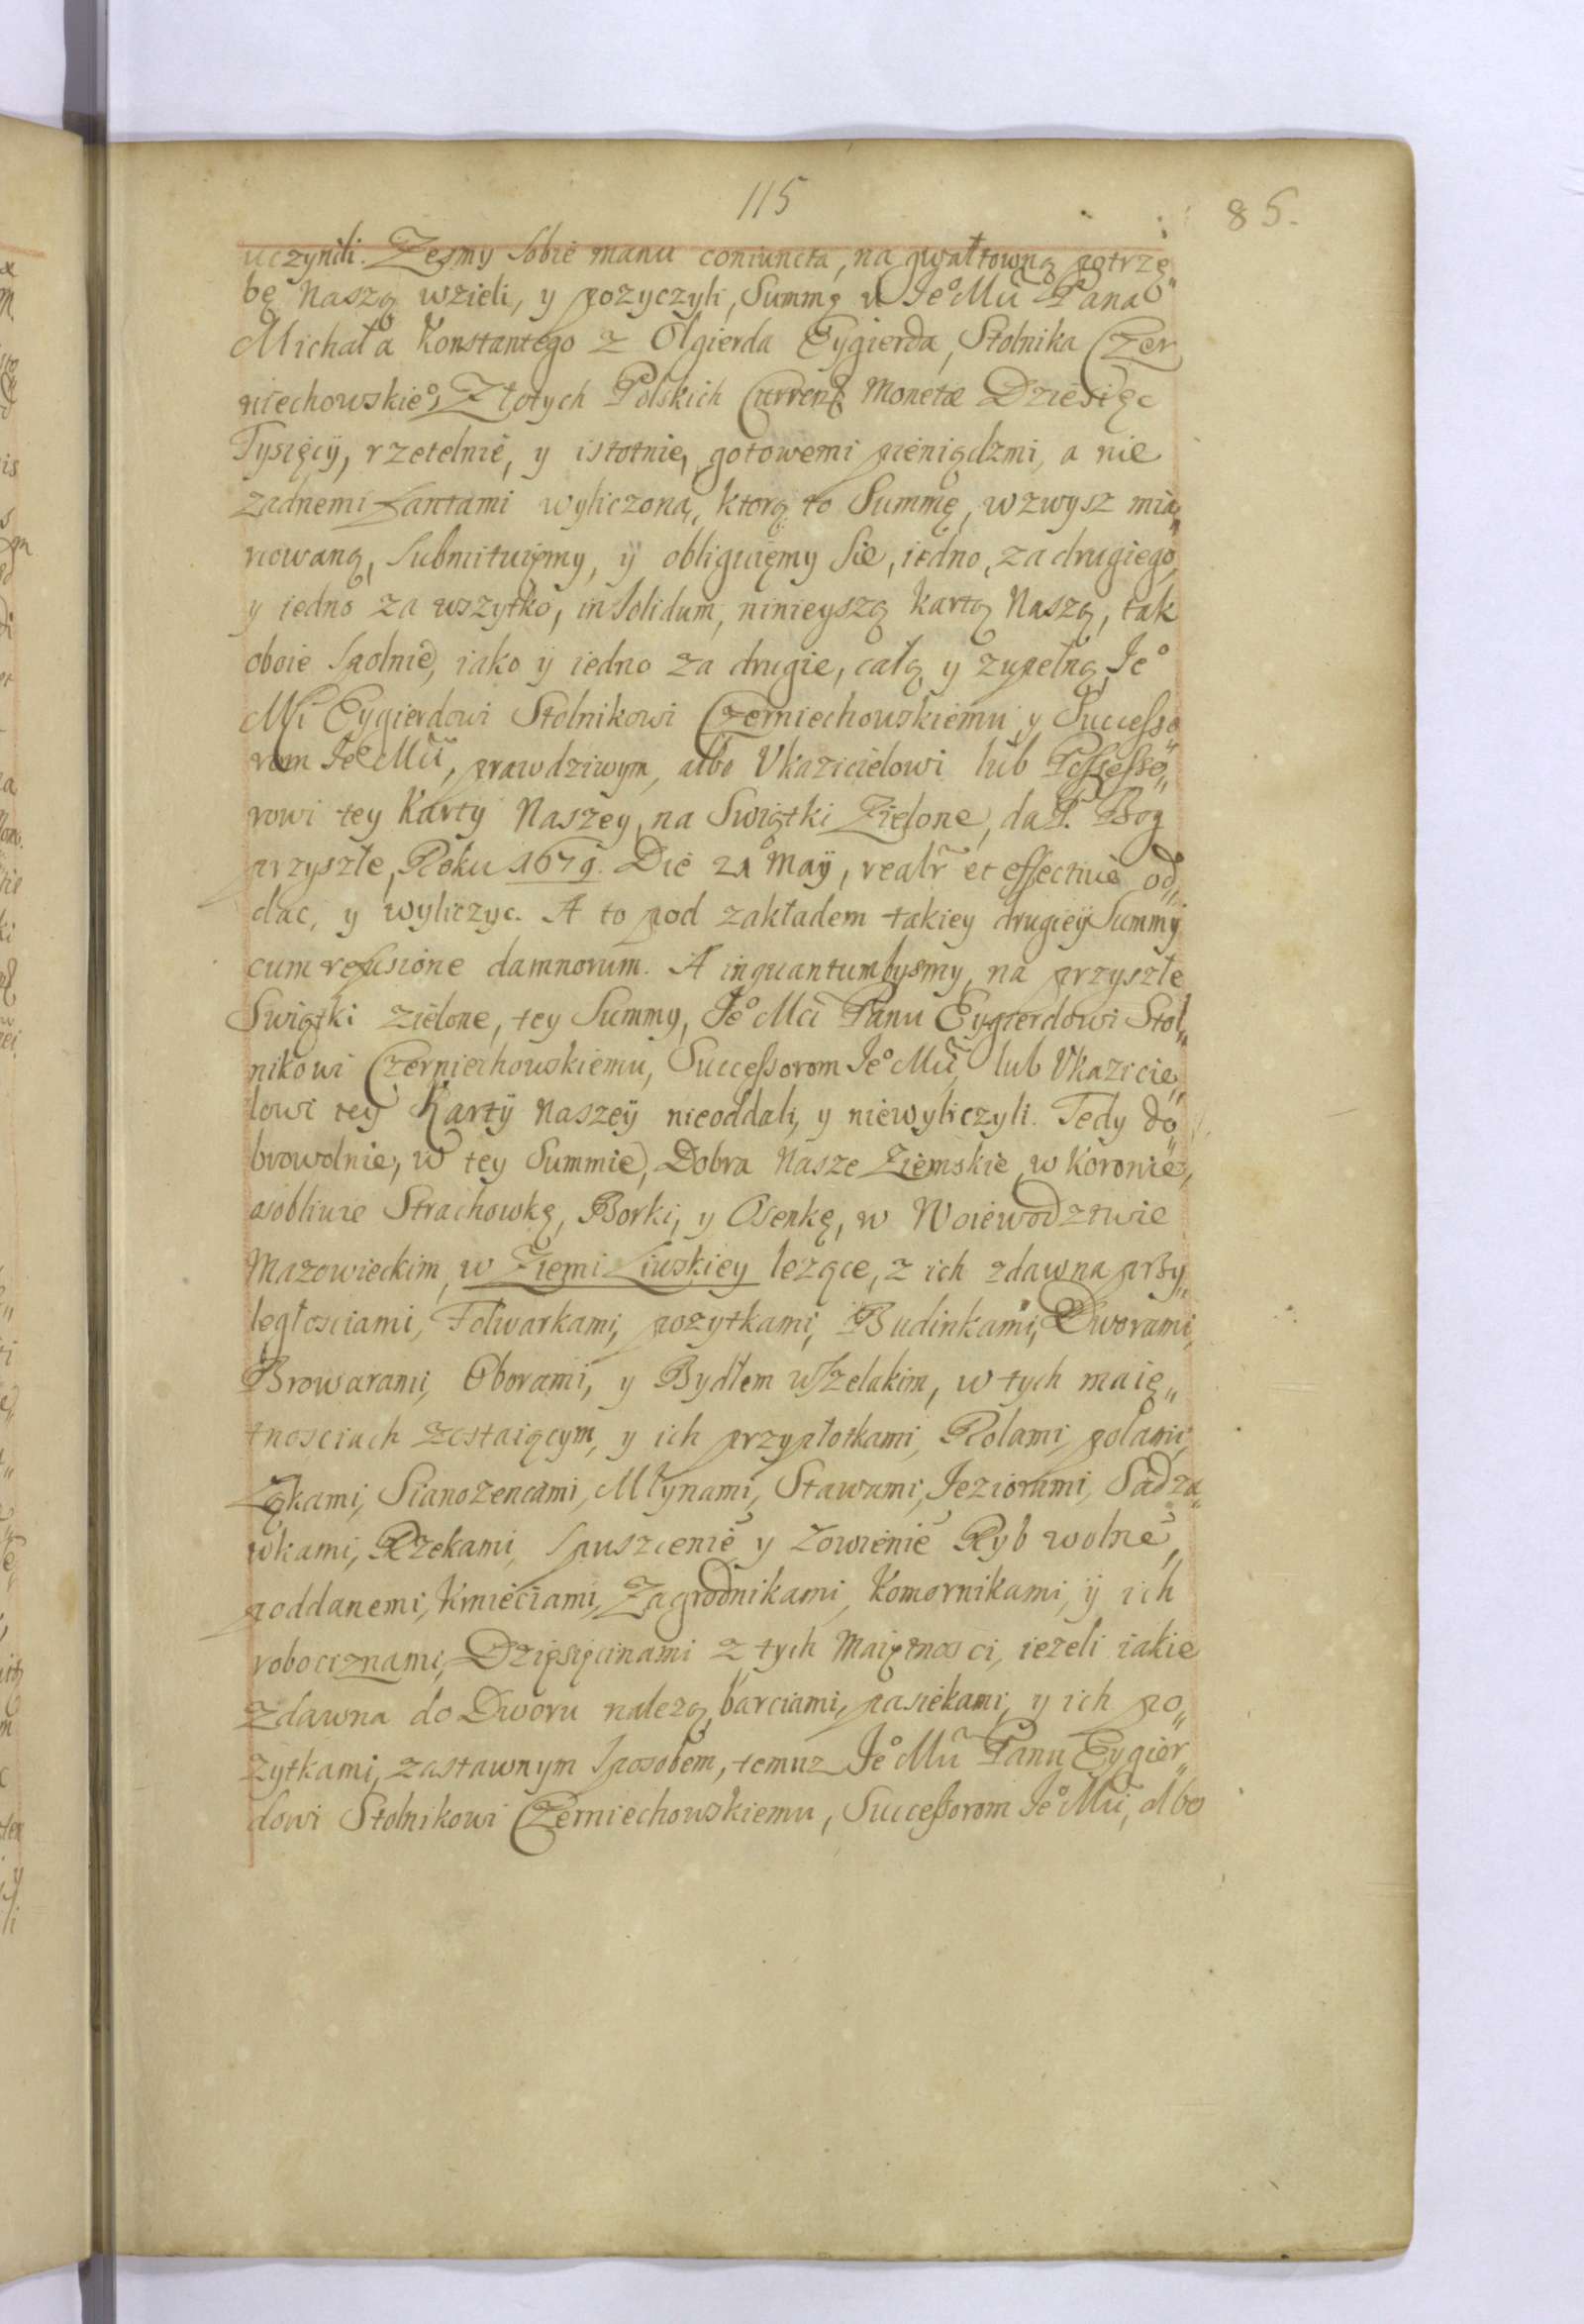 115
85.
uczynili. Zesmy sobie manu coniuncta, na gwałtowną potrzę„
bę Naszą wzieli, y pozyczyli, Summę u Ieº Mci Pana
Michała Konstantego z Olgierda Eygierda, Stolnika Czer
niechowskieº, Złotych Polskich Curren: Monetæ Dziesięc
Tysięcy, rzetelnie, y istotnie, gotowemi pieniądzmi, a nie
zadnemi Fantami wyliczoną, ktorą to Summę, wzwysz mia„
nowaną, submituięmy, ÿ obliguięmy Sie, iedno, za drugiego,
y iedno za wszytko, in solidum, ninieyszą kartą Naszą, tak
oboie spolnie, iako ÿ iedno za drugie, całą y zupełną Ieº
Mci Eygierdowi Stolnikowi Czerniechowskiemu, y Successo„
rom Ieº Mci, prawdziwym, albo Vkazicielowi lub Possesso„
rowi tey Karty Naszey, na Swiątki Zielone, da P. Bog
przyszłe, Roku 1679. Die 21º Maÿ, realr̃ et effective od„
dac, y wyliczyc. A to pod zakładem takiey drugieÿ Summÿ
cum refusione damnorum. A inquantumbysmy, na przyszłe
Swiątki zielone, tey Summy, Ieº Mci Panu Eygierdowi Stol„
nikowi Czerniechowskiemu, Successorom Ieº Mci, lub Vkazicie„
lowi teÿ Kartÿ Naszeÿ nieoddali, y niewyliczyli. Tedy do„
browolnie, w tey Summie, Dobra Nasze Ziemskie, w Koronie,
osobliwie Strachowkę, Borki, y Osenkę, w Woiewodztwie
Mazowieckim, w Ziemi Liwskiey lezące, z ich zdawna przy„
ległosciami, Folwarkami, pozytkami, Budinkami, Dworami,
Browarami, Oborami, y Bydłem wszelakim, w tych maię„
tnosciach zostaiącym, y ich przypłotkami, Rolami, polami,
Łąkami, Sianozenciami, Młynami, Stawami, Ieziorami, Sadza„
wkami, Rzekami, spuszcenie y Łowienie Ryb wolne,
poddanemi, Kmieciami, Zagrodnikami, Komornikami, ÿ ich
robociznami, Dzięsięcinami z tych Maiętnosci, iezeli iakie
zdawna do Dworu nalezą, barciami, pasiekami, y ich po„
zytkami, zastawnym sposobem, temuz Ieº Mci Panu Eygier„
dowi Stolnikowi Czerniechowskiemu, Successorom Ieº Mci, albo